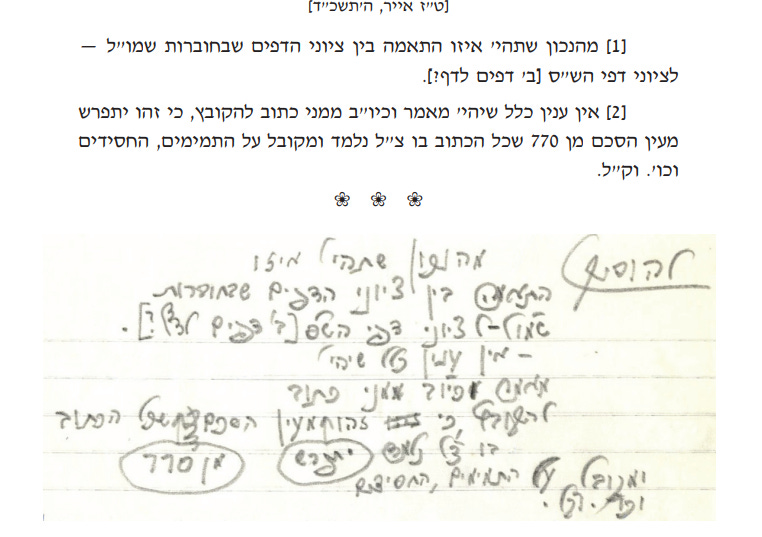 [ט״ז אייר, ה׳תשכ״ד]
[1] מהנכון שתהי׳ איזו התאמה בין ציוני הדפים שבחוברות שמו״ל —
לציוני דפי הש״ס [ב׳ דפים לדף?].
[2] אין ענין כלל שיהי׳ מאמר וכיו״ב ממני כתוב להקובץ, כי זהו יתפרש
מעין הסכם מן 770 שכל הכתוב בו צ״ל נלמד ומקובל על התמימים, החסידים
וכו׳. וק״ל.
להוסיף מהנכון שתהי׳ איזו
התאמה בין ציוני הדפים שבחוברות
שמול־ל ציוני דפי השס [ב׳ דפים לדף?].
– אין ענין כלל שיהי׳
מאמר וכיוב ממני כתוב
להקובץ, כי זהו מעין הסכם שכל הכתוב
בו צ״ל נלמד יתפרש מן 770
ומקובל על התמימים, החסידים
וכו׳. וקל.